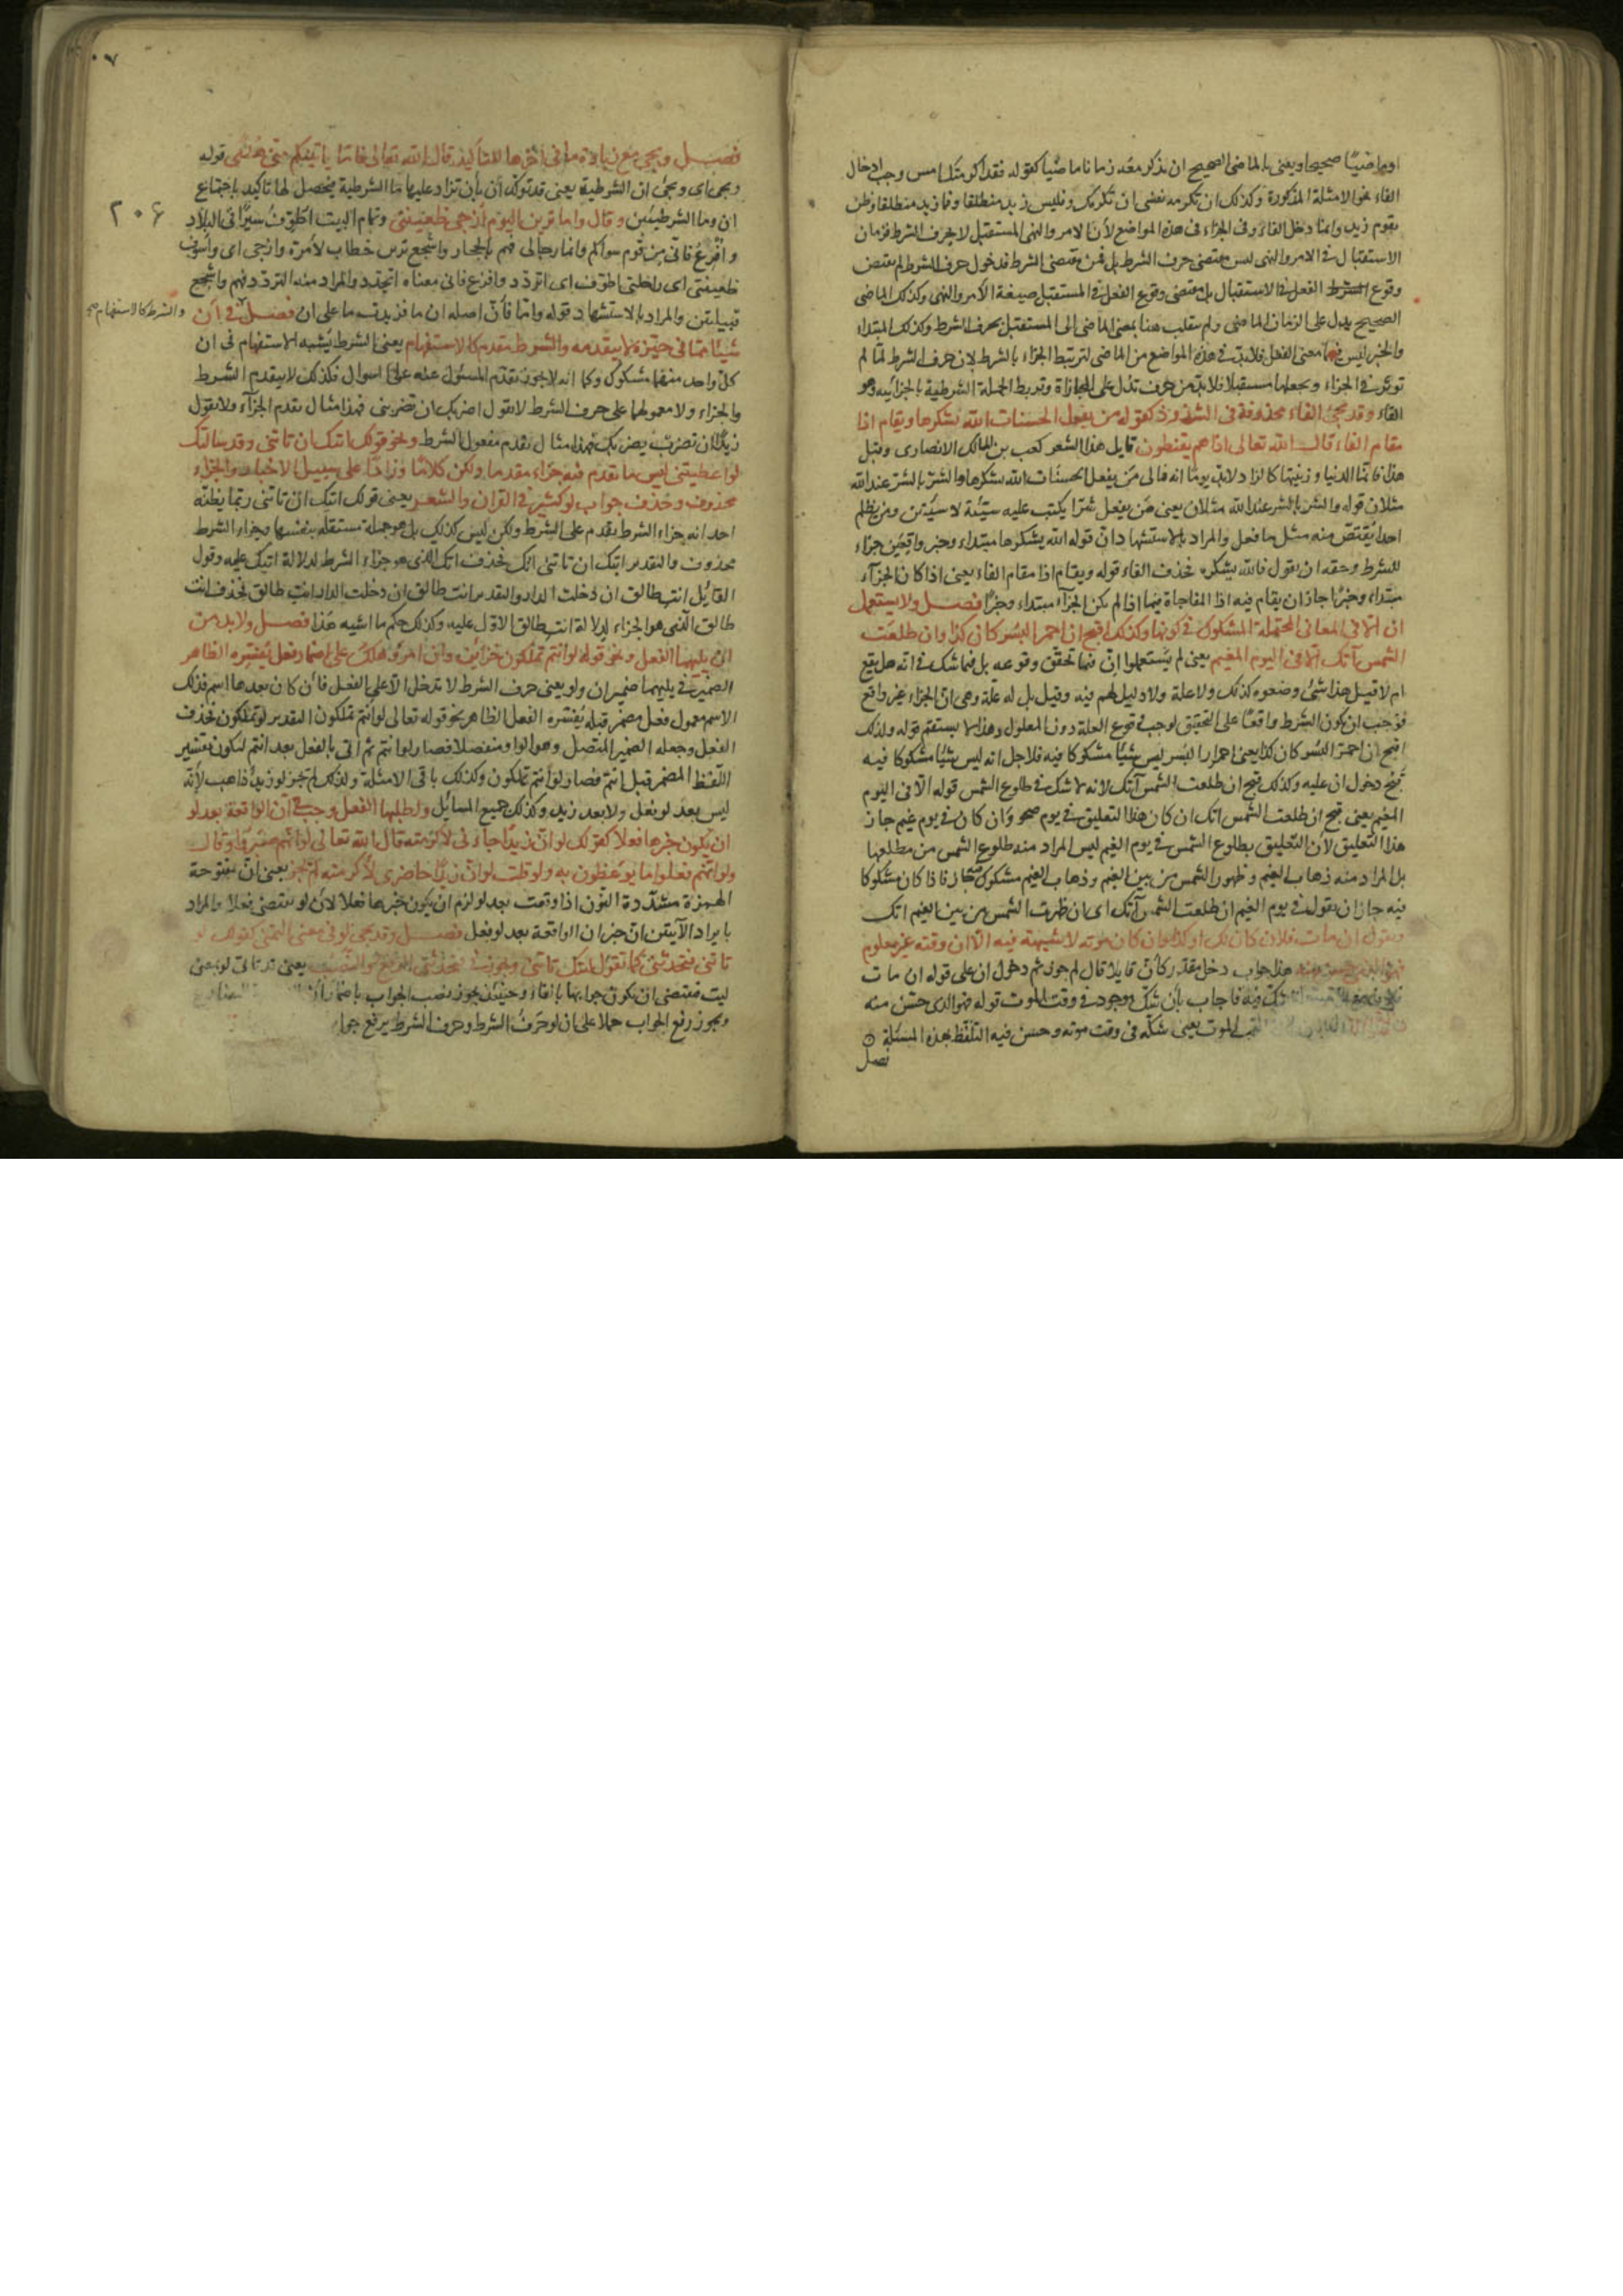 او ماضيًا صحيحا ويعنى بالماضى الصحيح ان يذكر معه زمانا ماضيًا كقوله فقد اكرمتك امس وجب ادخال
الفاء نحو الامثلة المذكورة وكذلك ان تكرمه نفضى ان تكرمك وفليس زيد منطلقا وفما زيد منطلقا وفلن
يقوم زيد وانما دخل الفاء فى الجزاء فى هذه المواضع لأن الامر والنهى المستقبل لا بحرف الشرط فزمان
الاستقبال فى الامر والنهى ليس مقتضى حرف الشرط بل فمن مقتضى الشرط فدخول حرف الشرط لم يقتض
وقوع الفعل فى الاستقبال بل مقتضى وقوع الفعل فى المستقبل صيغة الامر والنهى وكذلك الماضى
الصحيح يدل على الزمان الماضى ولم ينقلب هنا بمعنى الماضى الى المستقبل بحرف الشرط وكذلك المبتداء
والخبر ليس فيهما معنى الفعل فلابد فى هذه المواضع من الماضى لتربيط الجزاء بالشرط لان حرف الشرط لما لم
توثر فى الجزاء وبجعلها مستقبلا فلابد من حرف تدل على المجازاة وتربط الجملة الشرطية بالجزائية وهو
الفاء وقد مجئ الفاء محذوفة فى الشذوذ كقوله من يفعل الحسنات الله يشكرها ويقام اذا
مقام الفاء قال الله تعالى اذا هم يقنطون قايل هذا الشعر كعب بن مالك الانصارى وقبل
هذا فانما الدنيا وزينتها كالزاد لابد يومًا انه فانى من يفعل الحسنات الله يشكرها والشر بالشر عند الله
مثلان قوله والشر بالشر عند الله مثلان يعنى من يفعل شرا يكتب عليه سيئة لا سيئتين ومن يظلم
احدا يقتص منه مثل ما فعل والمراد بالاستشهاد ان قوله الله يشكرها مبتداء وخبر واقعين جزاء
للشرط وحقه ان يقول فالله يشكره فحذف الفاء قوله ويقام اذا مقام الفاء يعنى اذا كان الجزاء
مبتداء وخبرًا جاز ان يقام فيه اذا المفاجاة فيها اذا لم يكن الجزاء مبتداء وخبرًا فصل ولا يستعمل
ان الا فى المعانى المحتملة المشكوك فى كونها وكذلك اقبح ان احمر البسر كان كذا وان طلعت
الشمس آتك الا فى اليوم المغيم يعنى لم يستعملوا ان فيما تحقق وقوعه بل فيما شك فى انه هل يقع
ام لا قيل هذا شئ وضعوه كذلك ولا علة ولا دليل لهم فيه وقيل بل له علة وهى ان الجزاء غير واقع
فوجب ان يكون الشرط واقعًا على التحقيق لوجب وقوع العلة دون المعلول وهذا لا يستقيم قوله ولذلك
اقبح ان احمر البسر كان كذا يعنى احمرار البسر ليس شيئًا مشكوكا فيه فلاجل انه ليس شيئًا مشكوكا فيه
قبح دخول ان عليه وكذلك قبح ان طلعت الشمس آتك لانه لا شك فى طلوع الشمس قوله الا فى اليوم
المغيم يعنى قبح ان طلعت الشمس اتك ان كان هذا التعليق فى يوم صحو وان كان فى يوم غيم جاز
هذا التعليق لأن التعليق بطلوع الشمس فى يوم الغيم ليس المراد منه طلوع الشمس من مطلعها
بل المراد منه ذهاب الغيم وظهور الشمس من بين الغيم وذهاب الغيم مشكوك فيه فاذا كان مشكوكا
فيه جاز ان يقول فى يوم الغيم ان طلعت الشمس آتك اى ان ظهرت الشمس من بين الغيم اتك
وتقول ان مات فلان كان كذا وكذا وان كان موته لا شبهة فيه الا ان وقته غير معلوم
فهو الذى حسن منه هذا جواب دخل مقدر كأن قايلا قال لم جوزتم دخول ان على قوله ان مات
فلان شك فيه فاجاب بأن شك موجود فى وقت الموت قوله فهو الذى حسن منه
الموت يعنى شكه فى وقت موته وحسن فيه التلفظ بهذه المسئلة
فصل
٠٧
٢٠٦
فصل ويجئ مع زيادة ما فى آخرها للتأكيد قال الله تعالى فاما يأتينكم منى هدى قوله
ويجئ اى ويجئ ان الشرطية يعنى قد توكد ان بأن تزاد عليها ما الشرطية فيحصل لها تاكيد باجتماع
ان وما الشرطيتين وقال واما ترين اليوم ازجى ظعينتى وتمام البيت اطوف سيرًا فى البلاد
وافرع فانى من قوم سواكم وانما رجالى فهم بالحجاز واشجع ترين خطاب لامرة وازجى اى واسوق
ظعينتى اى راحلتى اطوف اى اتردد وافرع فانى معناه اتجدد والمراد منه التردد فهم واشجع
قبيلتين والمراد بالاستشهاد قوله واما فأن اصله ان ما فزيدت ما على ان فصل فى ان والشرط كالاستفهام
شيئا مما فى حيزه لا يتقدمه والشرط مقدم كالاستفهام يعنى الشرط يشبه الاستفهام فى ان
كل واحد منهما مشكوك وكما انه لا يجوز تقدم المسئول عنه على السوال فكذلك لا يتقدم الشرط
والجزاء ولا معمولهما على حرف الشرط لا تقول اضربك ان تضربنى فهذا مثال تقدم الجزاء ولا تقول
زيدًا ان تضرب يضربك فهذا مثال تقدم مفعول الشرط ونحو قولك اتيك ان تاتنى وقد سالتك
لو اعطيتنى ليس ما تقدم فيه جزاء مقدما ولكن كلامًا واردًا على سبيل الاخبار والجزاء
محذوف وحذف جواب لو كثير فى القران والشعر يعنى قولك اتيك ان تاتنى ربما يظنه
احد انه جزاء الشرط تقدم على الشرط ولكن ليس كذلك بل هو جملة مستقلة بنفسها وجزاء الشرط
محذوف والتقدير اتيك ان تاتنى اتك فحذف اتك الذى هو جزاء الشرط لدلالة اتيك عليه وقول
القائل انت طالق ان دخلت الدار والتقدير انت طالق ان دخلت الدار انت طالق فحذف انت
طالق الذى هو الجزاء لدلالة انت طالق الاول عليه وكذلك حكم ما اشبه هذا فصل ولا بد من
ان يليهما الفعل ونحو قوله لو انتم تملكون خزاين وان امرؤ هلك على اضمار فعل يفسره الظاهر
الضمير فى يليهما ضمير ان ولو يعنى حرف الشرط لا تدخل الا على الفعل فأن كان بعدها اسم فذلك
الاسم معمول فعل مضمر قبله يفسره الفعل الظاهر نحو قوله تعالى لو انتم تملكون التقدير لو تملكون فحذف
الفعل وجعله الضمير المتصل وهو الواو منفصلا فصار لو انتم ثم اتى بالفعل بعد انتم ليكون تفسير
اللفظ المضمر قبل انتم فصار لو انتم تملكون وكذلك باقى الامثلة ولذلك لم تجز لو زيد ذاهب لأنه
ليس بعد لو فعل ولا بعد زيد وكذلك جميع المسائل ولطلبهما الفعل وجب فى ان الواقعة بعد لو
ان يكون خبرها فعلا كقولك لو ان زيدًا جاءنى لاكرمته قال الله تعالى لو انهم صبروا وقال
ولو انهم فعلوا ما يوعظون به ولو قلت لو ان زيدًا حاضرى لأكرمته لم تجز يعنى ان مفتوحة
الهمزة مشددة النون اذا وقعت بعد لو لزم ان يكون خبرها فعلا لأن لو تقتضى فعلا والمراد
بايراد الآيتين ان خبر ان الواقعة بعد لو فعل فصل وقد يجئ لو فى معنى التمنى كقولك لو
تاتنى فتحدثنى كما تقول ليتك تاتنى ويجوز فى تحدثنى الرفع والنصب يعنى قد تاتى لو بمعنى
ليت فتقتضى ان يكون جوابها بالفاء وحينئذ يجوز نصب الجواب باضمار ان
ويجوز رفع الجواب حملا على ان لو حرف الشرط وحرف الشرط يرفع جواء